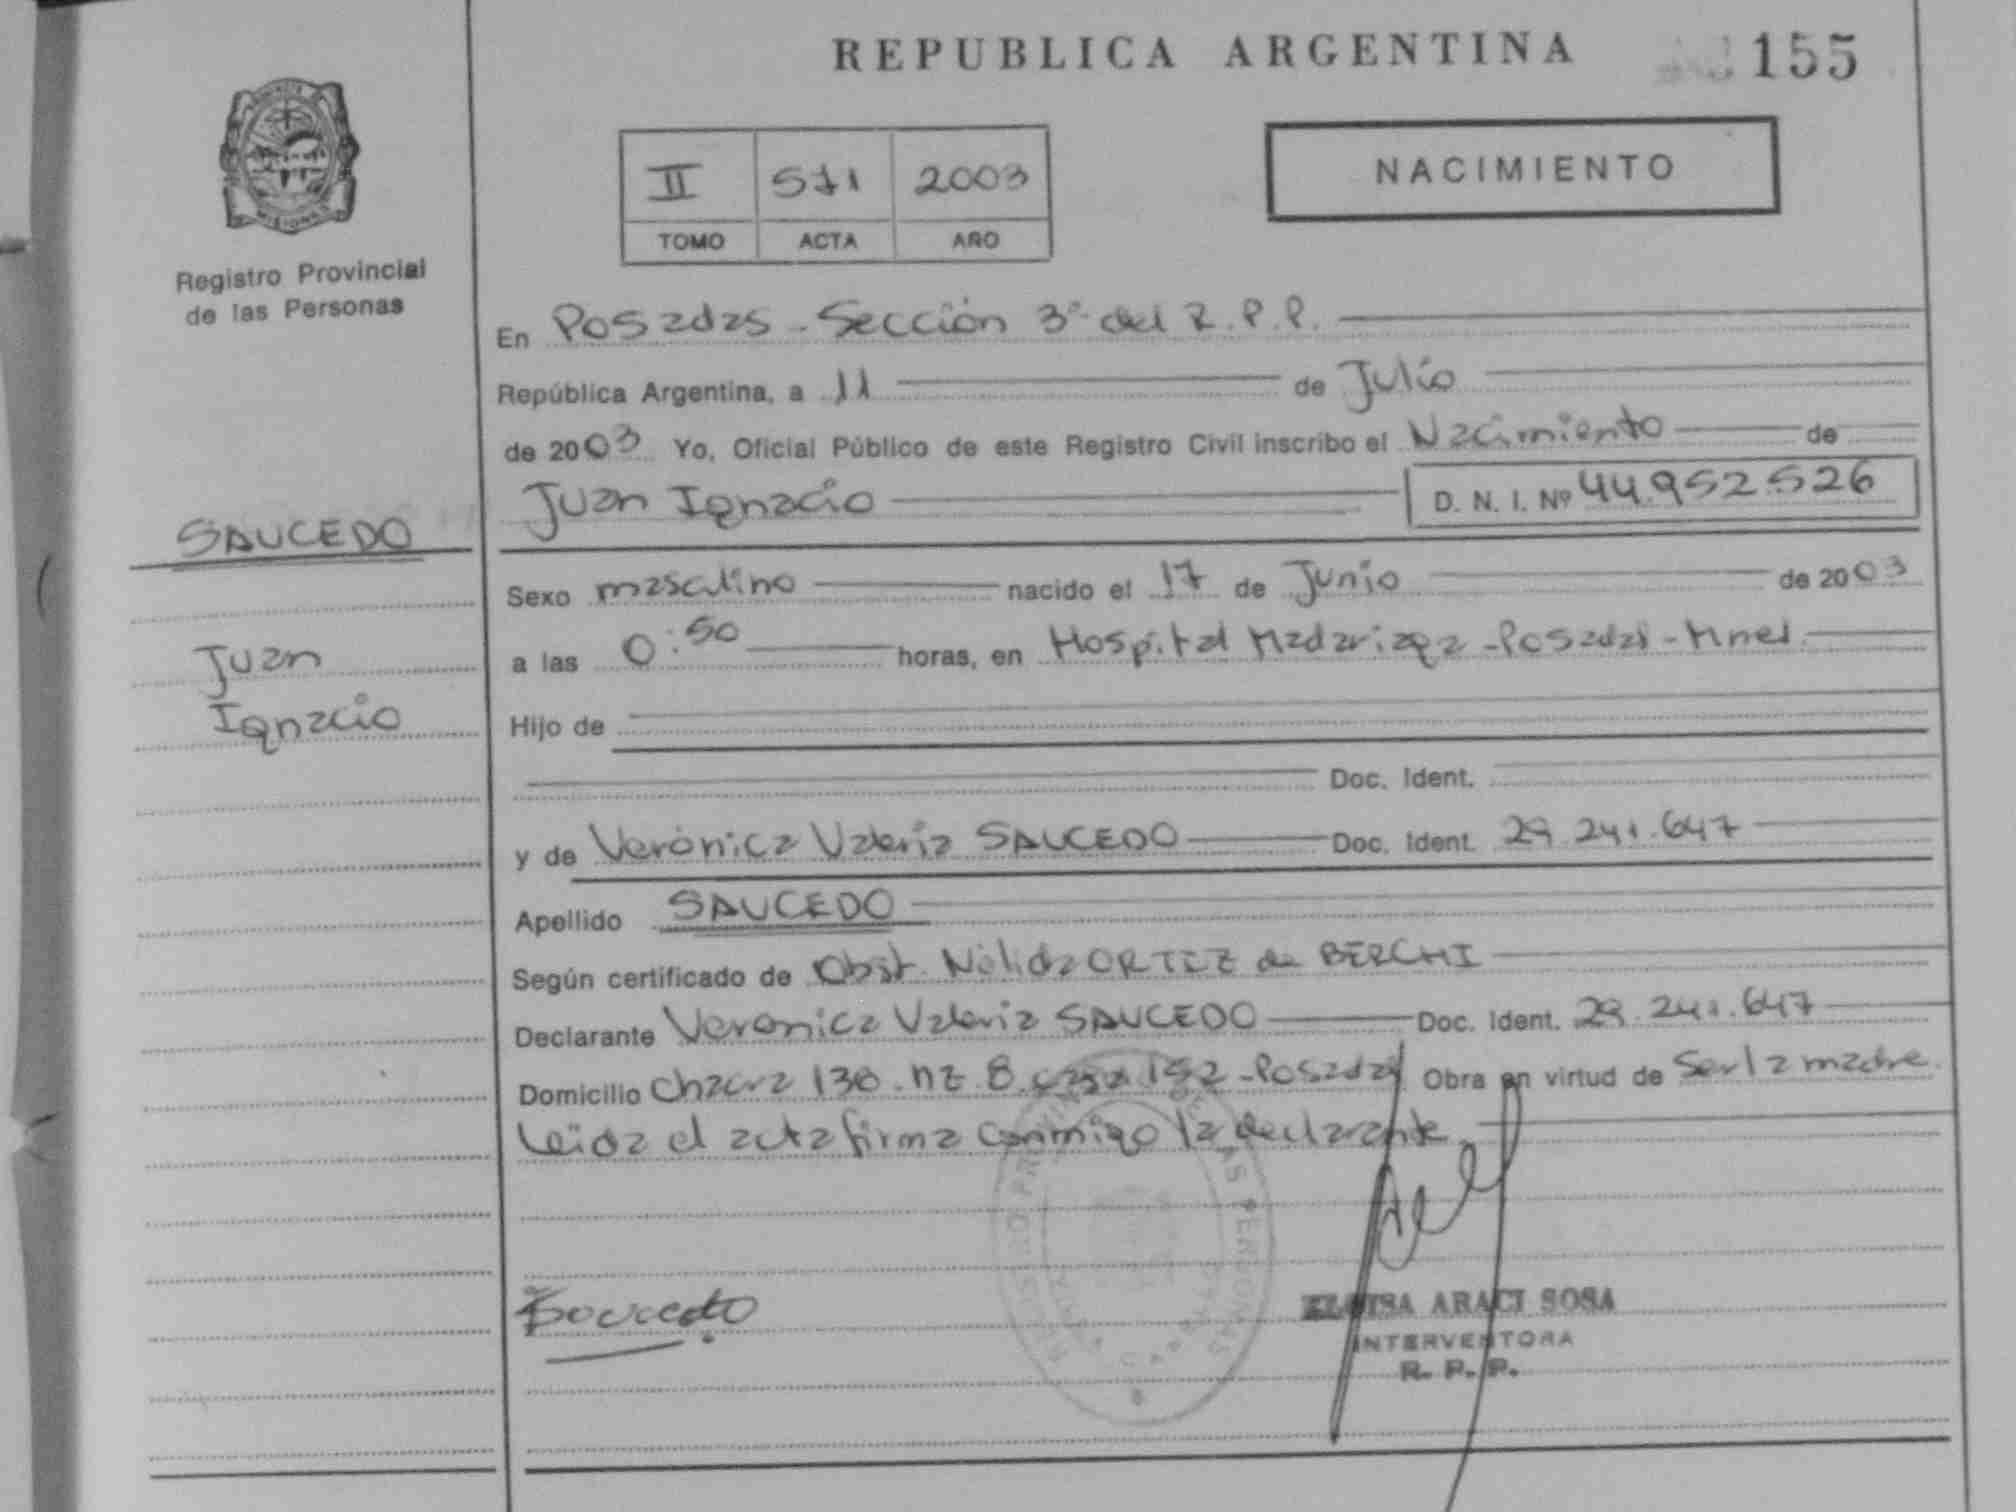 REPUBLICA ARGENTINA
155
NACIMIENTO
II 571 2003
TOMO ACTA AÑO
MISIONES
Registro Provincial
de las Personas
En Posadas - Sección 3º del R.P.P.
República Argentina, a 11 de Julio
de 2003 Yo, Oficial Público de este Registro Civil inscribo el Nacimiento de
Juan Ignacio D. N. I. Nº 44.952.526
SAUCEDO
Juan
Ignacio
Sexo masculino nacido el 17 de Junio de 2003
a las 0:50 horas, en Hospital Madariaga - Posadas - Mnes.
Hijo de
Doc. Ident.
y de Verónica Valeria SAUCEDO Doc. Ident. 29.241.647
Apellido SAUCEDO
Según certificado de Obst. Nélida ORTIZ de BERCHI
Declarante Veronica Valeria SAUCEDO Doc. Ident. 29.241.647
Domicilio Chacra 138 . Mz 8 . casa 152 - Posadas Obra en virtud de ser la madre.
Leída el acta firma conmigo la declarante.
REGISTRO PROVINCIAL DE LAS PERSONAS
Saucedo
ELOISA ARACI SOSA
INTERVENTORA
R. P. P.